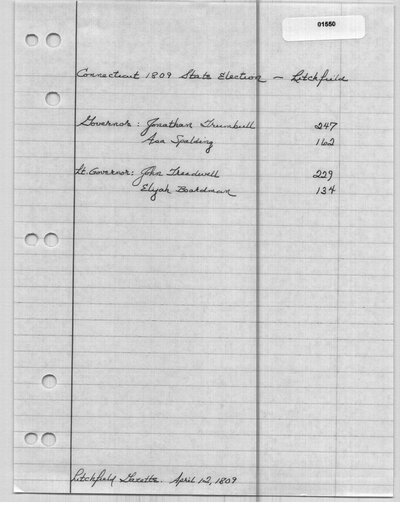 01550
Connecticut 1809 State Election - Litchfield
Governor: Jonathan Trumbull 247
Asa Spalding 162
Lt. Governor: John Treadwell 229
Elijah Boardman 134
Litchfield Gazette. April 12, 1809